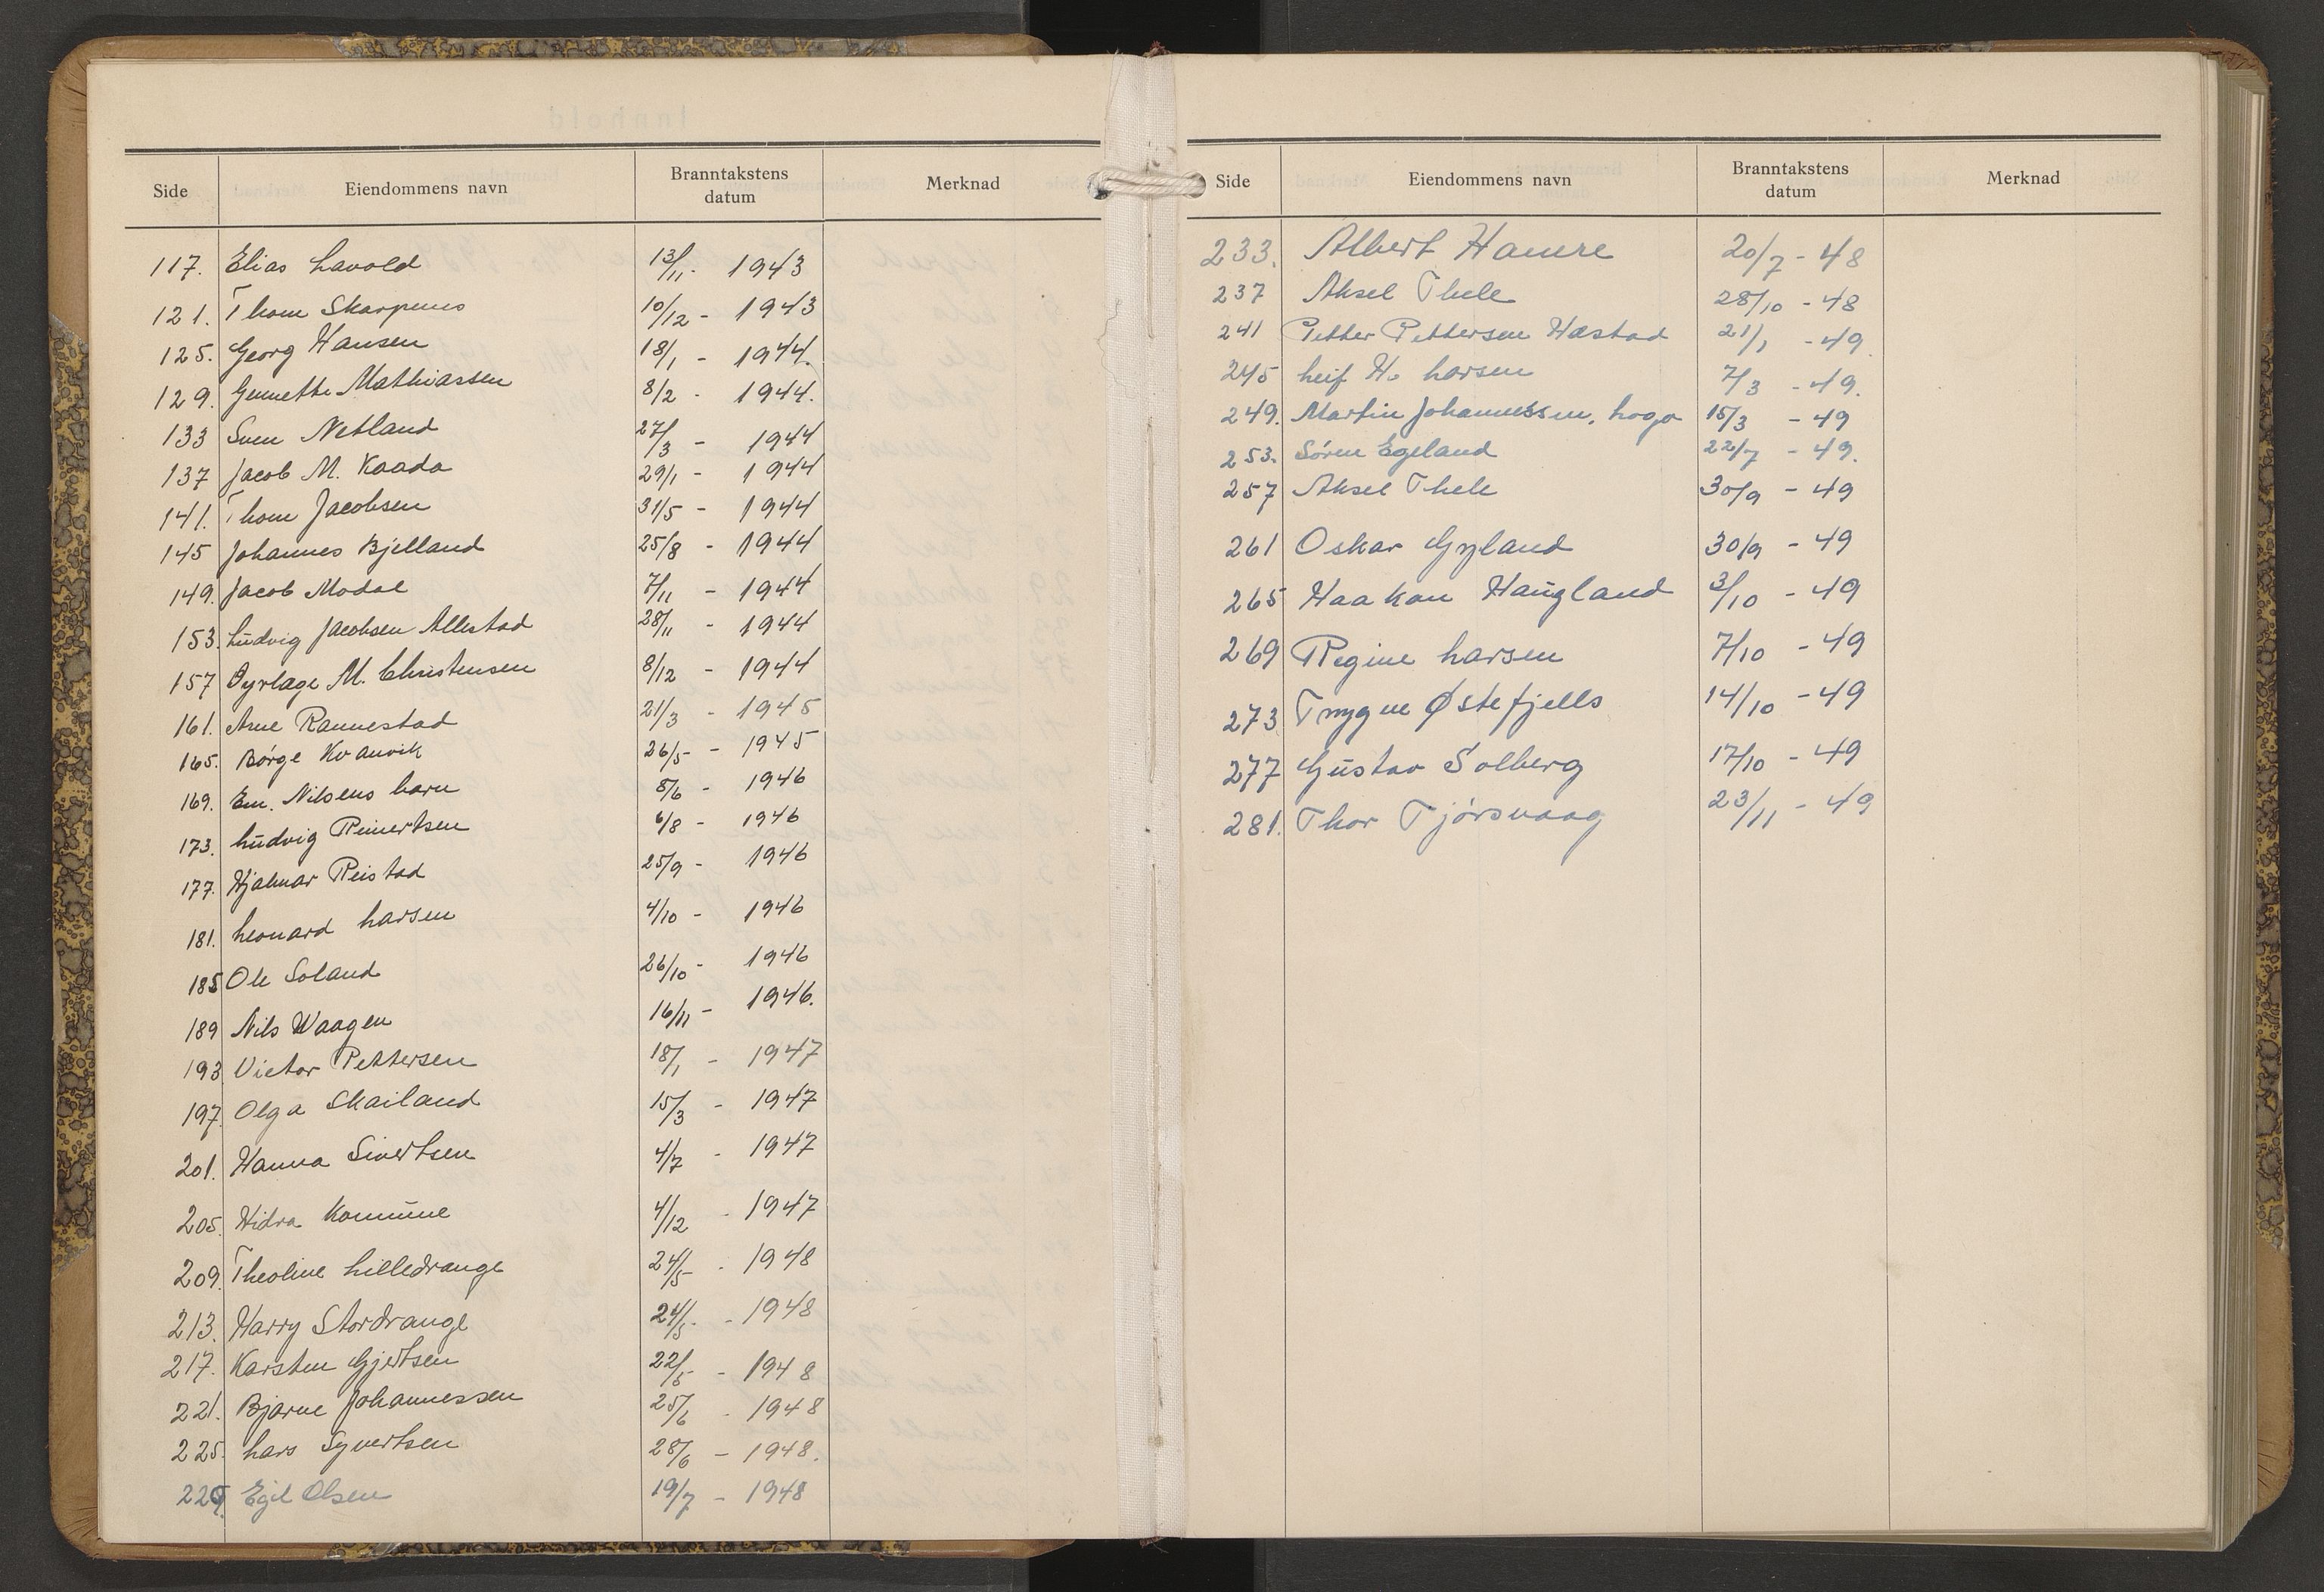 Side Eiendommens navn Branntakstens datum Merknad
117. Elias Lavold 13/11. 1943
121. Thom Skarpenes 10/12 - 1943
125. Georg Hansen 18/1 - 1944.
129. Mathiassen 8/2 - 1944.
133 Sven Netland 27/3 - 1944
137 Jacob M. Kaada 29/1 - 1944
141. Thom Jacobsen 31/5 - 1944
145 Johannes Bjelland 25/8 - 1944
149. Jacob Modal 7/11 - 1944
153. Ludvig Jacobsen Allestad 28/11 - 1944
157 M. Christensen 8/12 - 1944
161. Arne Rannestad 21/3 - 1945
165. Børge Kvanvik 26/5 - 1945
169. Em. Nilsens barn 8/6 - 1946
173. Ludvig Reinertsen 6/8 - 1946
177. Hjalmar Reistad 25/9 - 1946
181. Leonard Larsen 4/10 - 1946
185 Ole Soland 26/10 - 1946
189 Nils Waagen 16/11 - 1946.
193 Victor Pettersen 18/1 - 1947
197 Olga Skailand 15/3 - 1947
201. Hanna Sivertsen 4/7 - 1947
205. Hidra Kommune 4/12 - 1947
209. Theoline Lilledrange 24/5 - 1948
213. Harry Stordrange 24/5. - 1948
217. Karsten Gjertsen 22/5 - 1948
221. Bjarne Johannessen 25/6 - 1948
225. Lars Syvertsen 28/6 - 1948.
229. Egil Olsen 19/7 - 1948
Side Eiendommens navn Branntakstens datum Merknad
233. Albert Hamre 20/7 - 48
237 Aksel Thele 28/10 - 48
241 Petter Pettersen Hæstad 21/1 - 49.
245 Leif H. Larsen 7/3 - 49.
249. Martin Johannessen, Loga 15/3 - 49
253. Søren Egeland 22/7 - 49.
257 Aksel Thele 30/9 - 49
261 Oskar Gyland 30/9 - 49
265 Haakon Haugland 3/10 - 49
269 Regine Larsen 7/10 - 49
273 Trygve Østefjells 14/10 - 49
277 Gustav Solberg 17/10 - 49
281. Thor Tjørsvaag 23/11 - 49